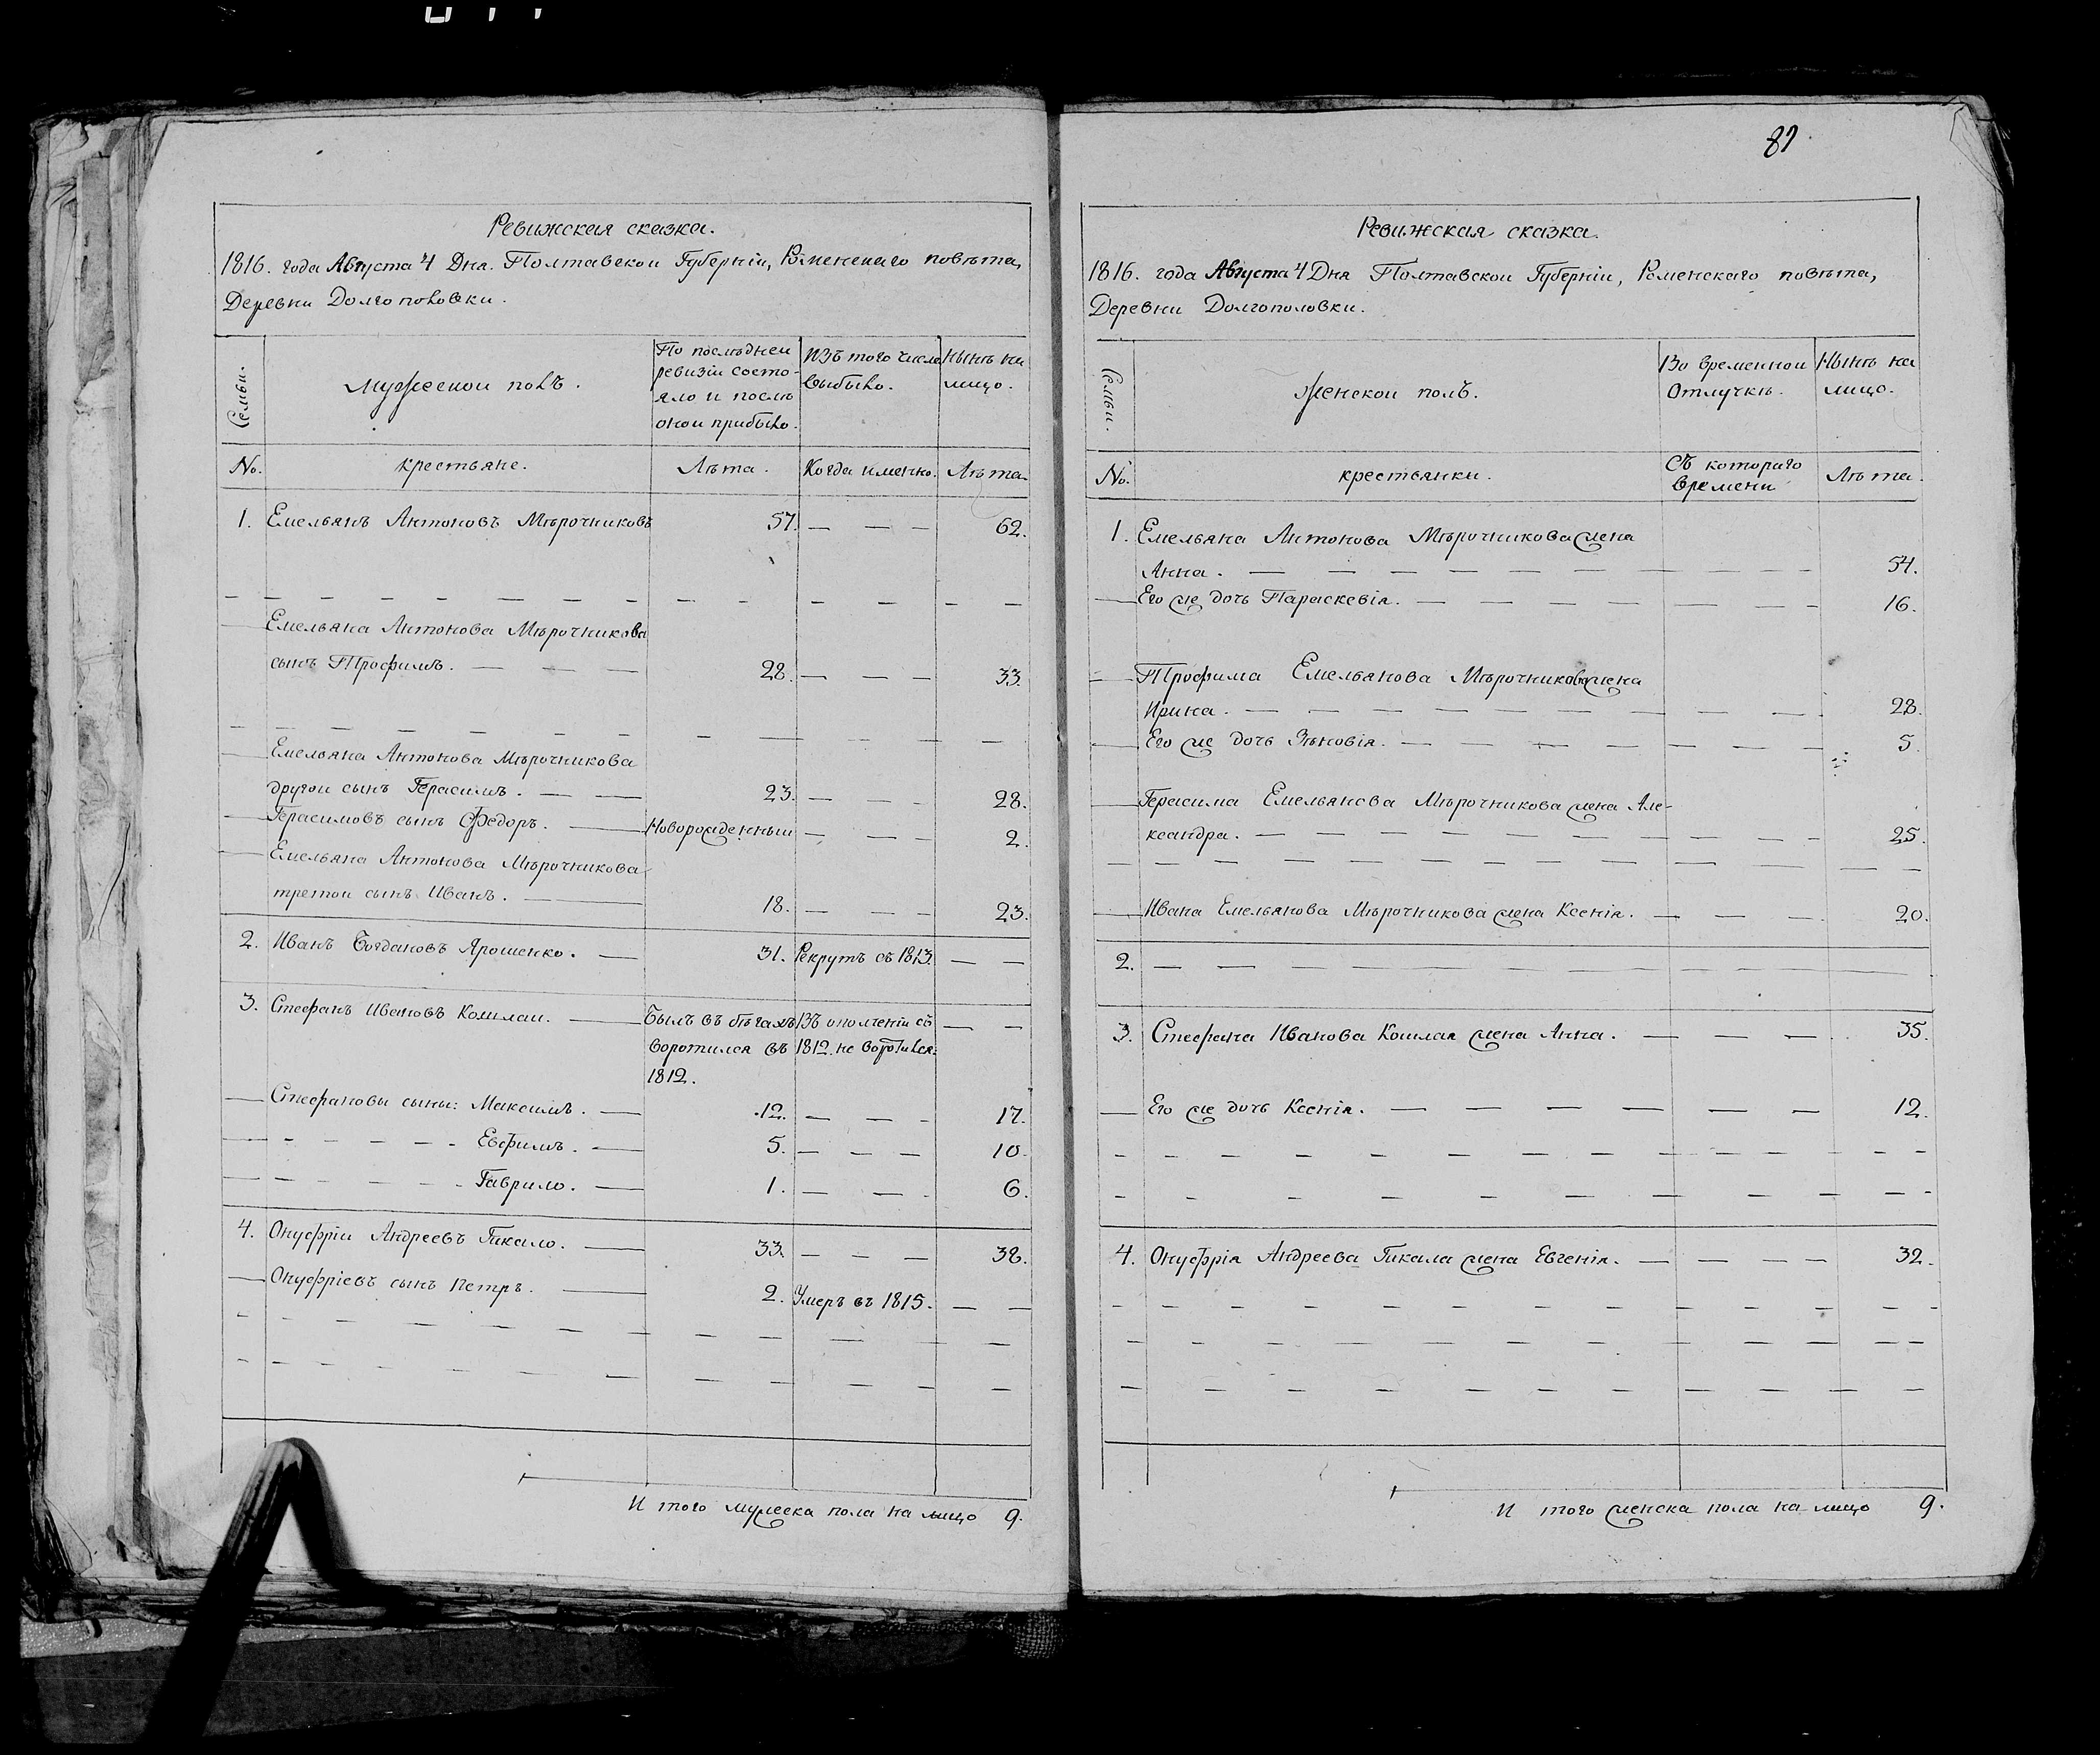 Ревижская сказка.
1816. года Августа 4 Дня. Полтавской Губерніи, Роменскаго повѣта,
Деревни Долгополовки.
Семьи.
Мужеской полъ.
По послѣдней
ревизіи состо-
яло и послѣ
оной прибыло.
Изъ того числа
выбыло.
Нынѣ на
лицо.
No.
крестьяне.
Лѣта.
Когда именно.
Лѣта.
1. Емельянъ Антоновъ Мѣрочниковъ 57. — — — 62.
Емельяна Антонова Мѣрочникова
сынъ Трофимъ. — — — 28. — — — 33.
Емельяна Антонова Мѣрочникова
другой сынъ Герасимъ. — — 23. — — — 28.
Герасимовъ сынъ Федоръ. — Новорожденный — — — 2.
Емельяна Антонова Мѣрочникова
третой сынъ Иванъ. — 18. — — — 23.
2. Иванъ Богдановъ Ярошенко. — 31. Рекрутъ съ 1813. — —
3. Стефанъ Ивановъ Кошлай. — Былъ въ бѣгахъ Въ ополченіи съ — —
воротился въ 1812. не воротился.
1812.
Стефановы сыны: Максимъ. — 12. — — — 17.
— — — — — — Евфимъ. — 5. — — — 10.
— — — — — — Гаврило. — 1. — — — 6.
4. Онуфрій Андреевъ Гикало. — 33. — — — 38.
Онуфріевъ сынъ Петръ. — 2. Умеръ въ 1815. — —
И того мужеска пола на лицо 9.
81
Ревижская сказка.
1816. года Августа 4 Дня Полтавской Губерніи, Роменскаго повѣта,
Деревни Долгополовки.
Семьи.
Женской полъ.
Во временной
Отлучкѣ.
Нынѣ на
лицо.
No.
крестьянки.
Съ котораго
времени
Лѣта.
1. Емельяна Антонова Мѣрочникова жена
Анна. — — — — — — — — — 54.
— Его же дочь Параскевія. — — — — — — — — 16.
— Трофима Емельянова Мѣрочникова жена
Ирина. — — — — — — — — — 28.
— Его же дочь Зѣновія. — — — — — — — — 5.
— Герасима Емельянова Мѣрочникова жена Але-
ксандра. — — — — — — — — — 25.
— Ивана Емельянова Мѣрочникова жена Ксенія. — — — 20.
2. — — — — — — — — —
3. Стефана Иванова Кошлая жена Анна. — — — 35.
— Его же дочь Ксенія. — — — — — — — 12.
4. Онуфрія Андреева Гикала жена Евгенія. — — — — 32.
И того женска пола на лицо 9.